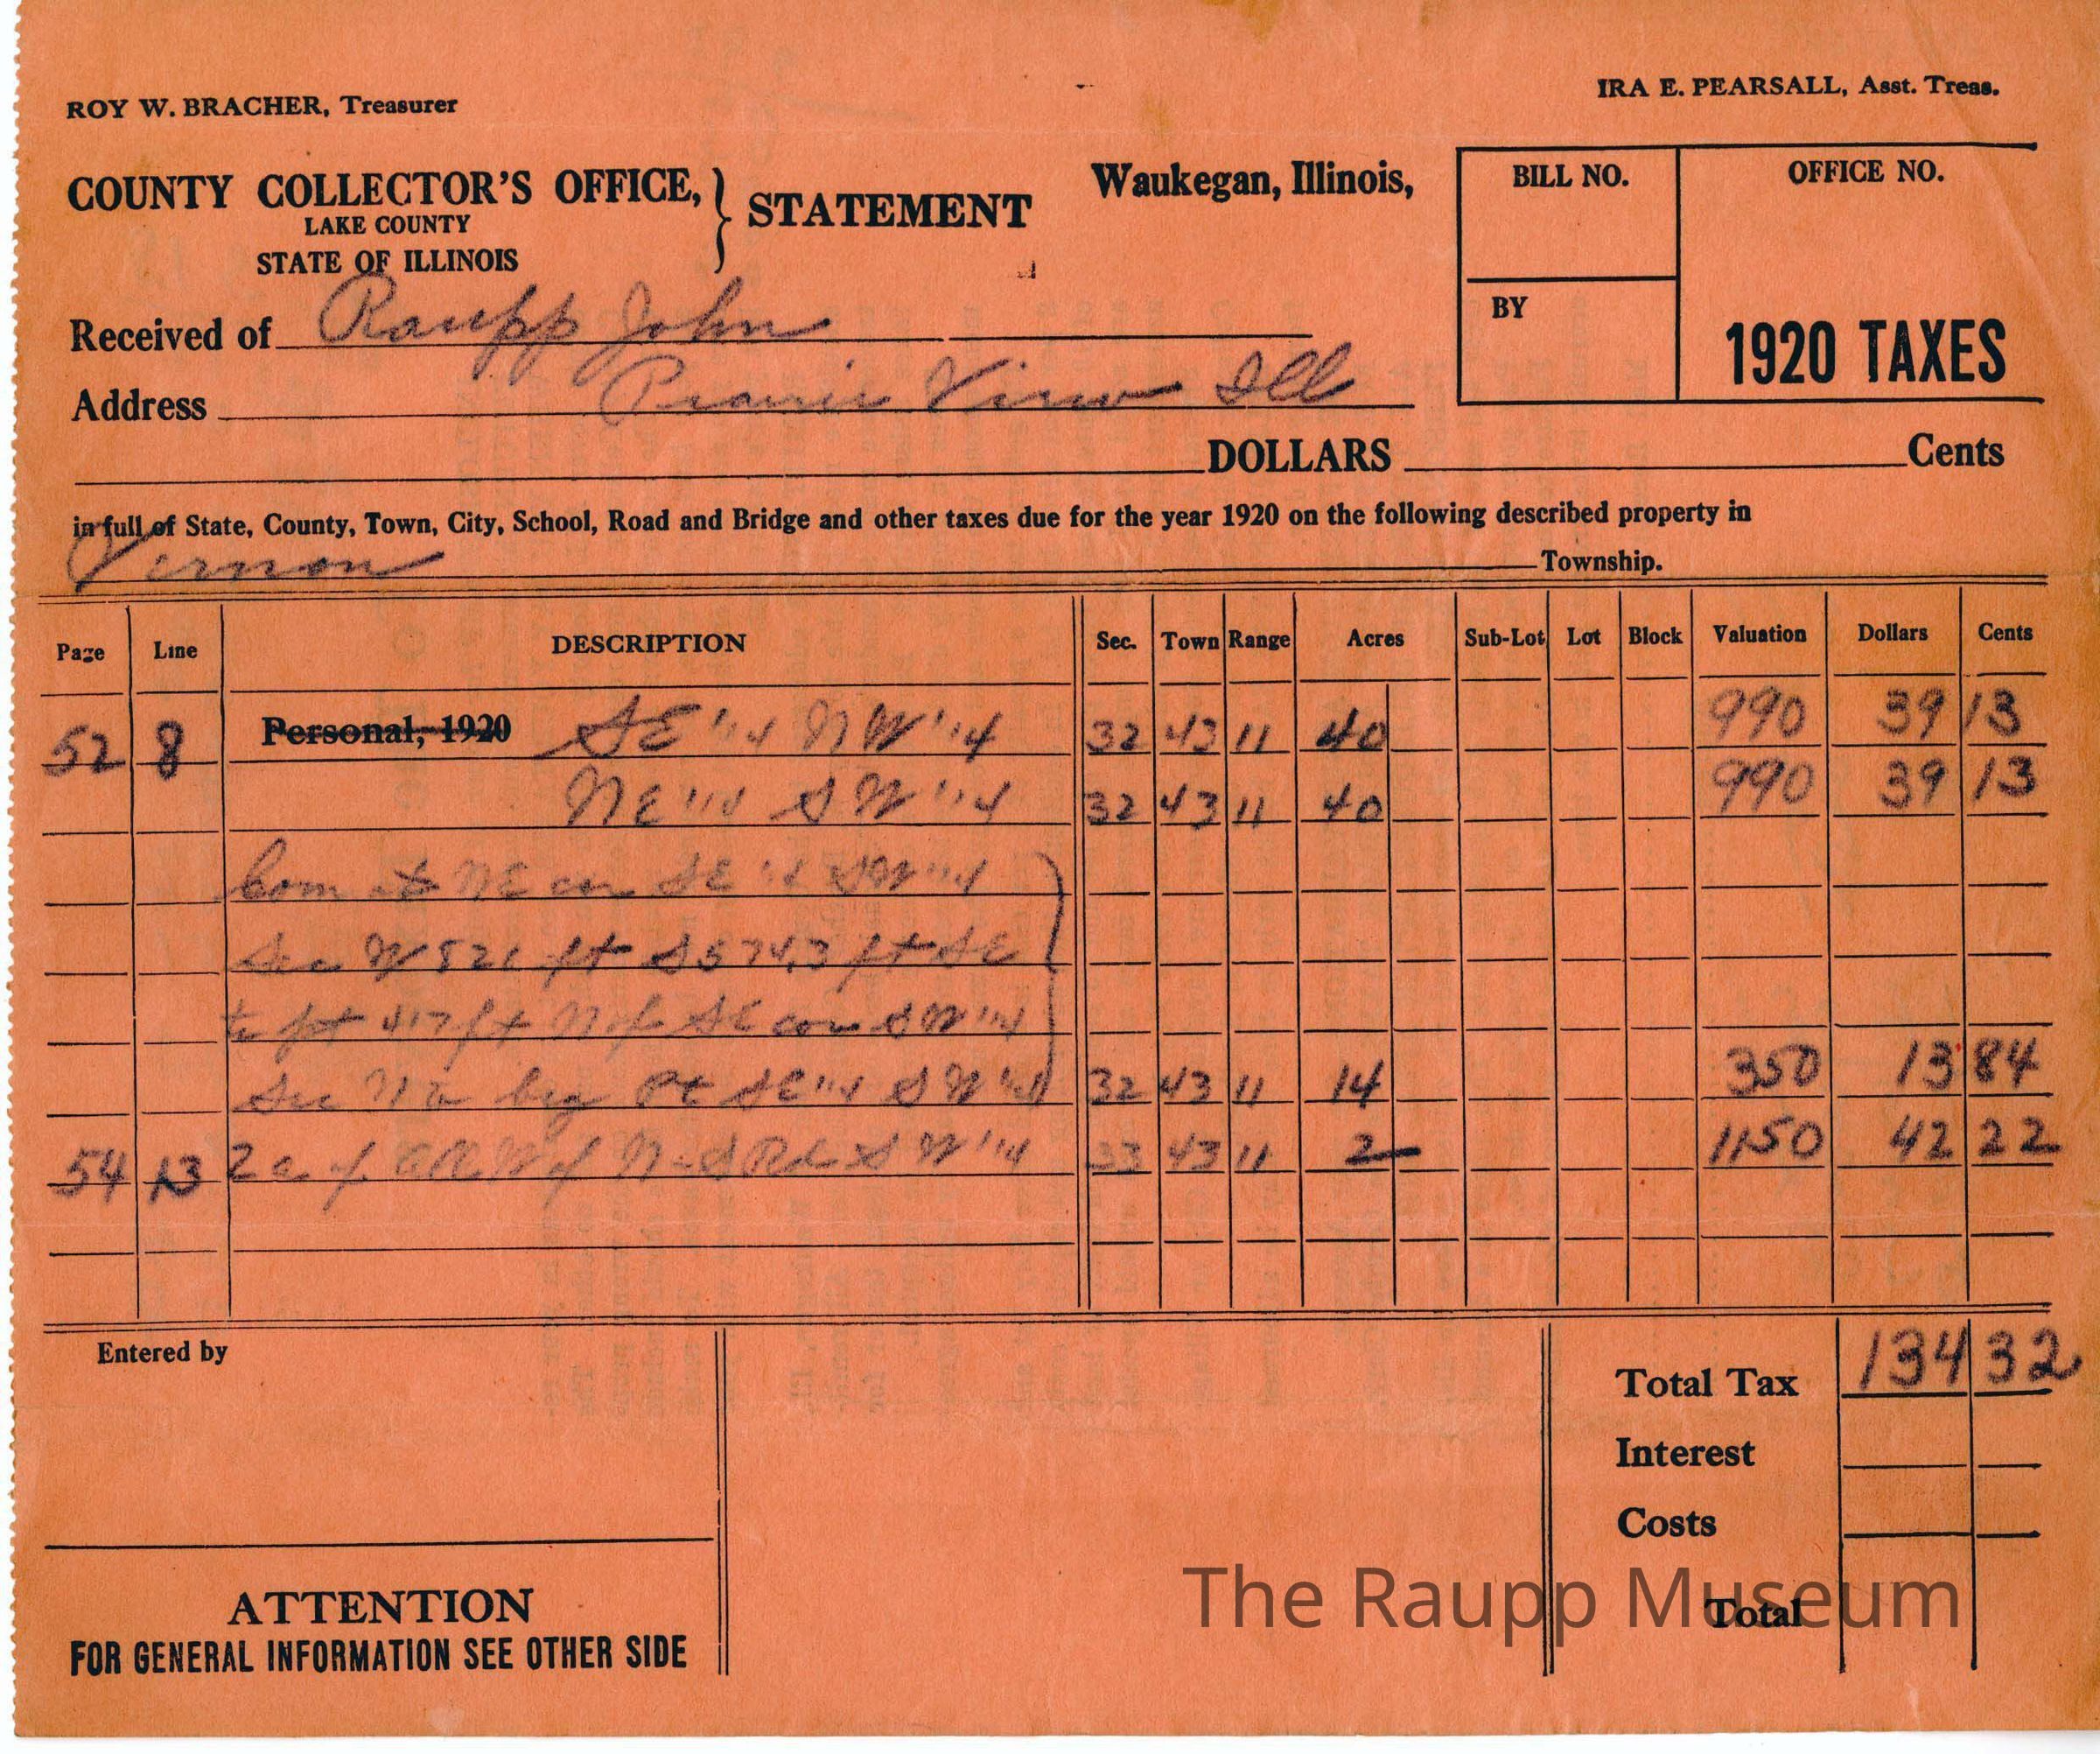 ROY W. BRACHER, Treasurer
IRA E. PEARSALL, Asst. Treas.
COUNTY COLLECTOR'S OFFICE,
LAKE COUNTY
STATE OF ILLINOIS
STATEMENT
Waukegan, Illinois,
BILL NO.
OFFICE NO.
BY
1920 TAXES
Received of Raupp John
Address Prairie View Ill
DOLLARS Cents
in full of State, County, Town, City, School, Road and Bridge and other taxes due for the year 1920 on the following described property in
Vernon Township.
Page Line DESCRIPTION Sec. Town Range Acres Sub-Lot Lot Block Valuation Dollars Cents
52 8 Personal, 1920 SE 1/4 NW 1/4 32 43 11 40 990 39 13
NE 1/4 SW 1/4 32 43 11 40 990 39 13
Com at NE cor SE 1/4 SW 1/4
Sec W 521 ft S 574.3 ft SE
to pt 417 ft N of SE cor SW 1/4
Sec N to beg Pt SE 1/4 SW 1/4 32 43 11 14 350 13 84
54 13 2 a of W of N & S Rd SW 1/4 33 43 11 2 1150 42 22
Entered by
Total Tax 134 32
Interest
Costs
Total
ATTENTION
FOR GENERAL INFORMATION SEE OTHER SIDE
The Raupp Museum